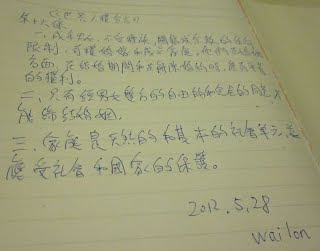 《世界人權宣言》
第十六條
一、成年男女,不受種族、國籍或宗教的任何
限制,可權婚嫁和成立家庭,他們在婚姻
方面,在結婚期間和在解除婚約時,應有平等
的權利。
二、只有經男女雙方的自由的和完全的同意,才
能締結婚姻。
三、家庭是天然的和基本的社會單元,並
應受社會和國家的保護。
2012.5.28
wailon